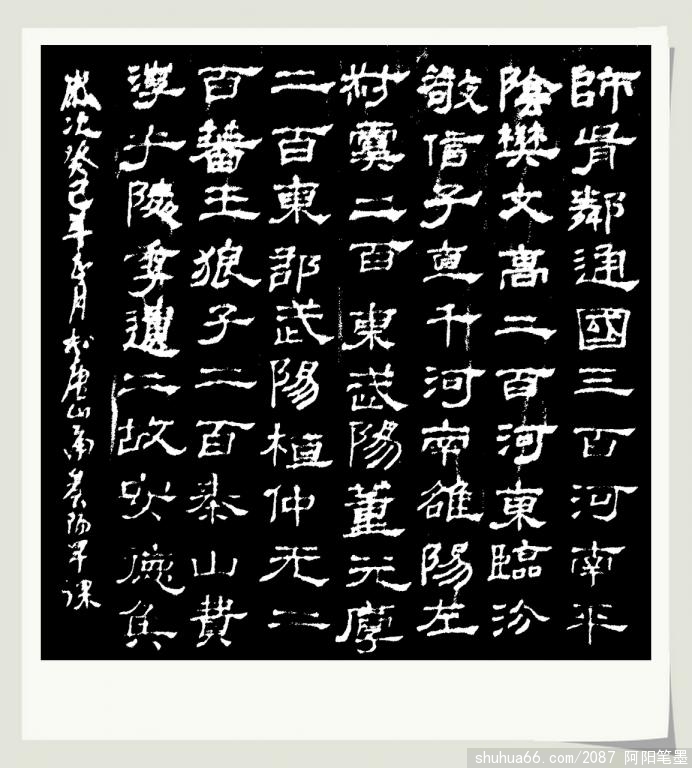 師胥鄰通國三百河南平
陰樊文高二百河東臨汾
敬信子直千河南雒陽左
叔虞二百東武陽董元厚
二百東郡武陽桓仲元二
百蕃王狼子二百泰山費
淳于陵季遺二故安德侯
歲次癸巳年五月於唐山南
shuhua66.com/2087 阿阳笔墨